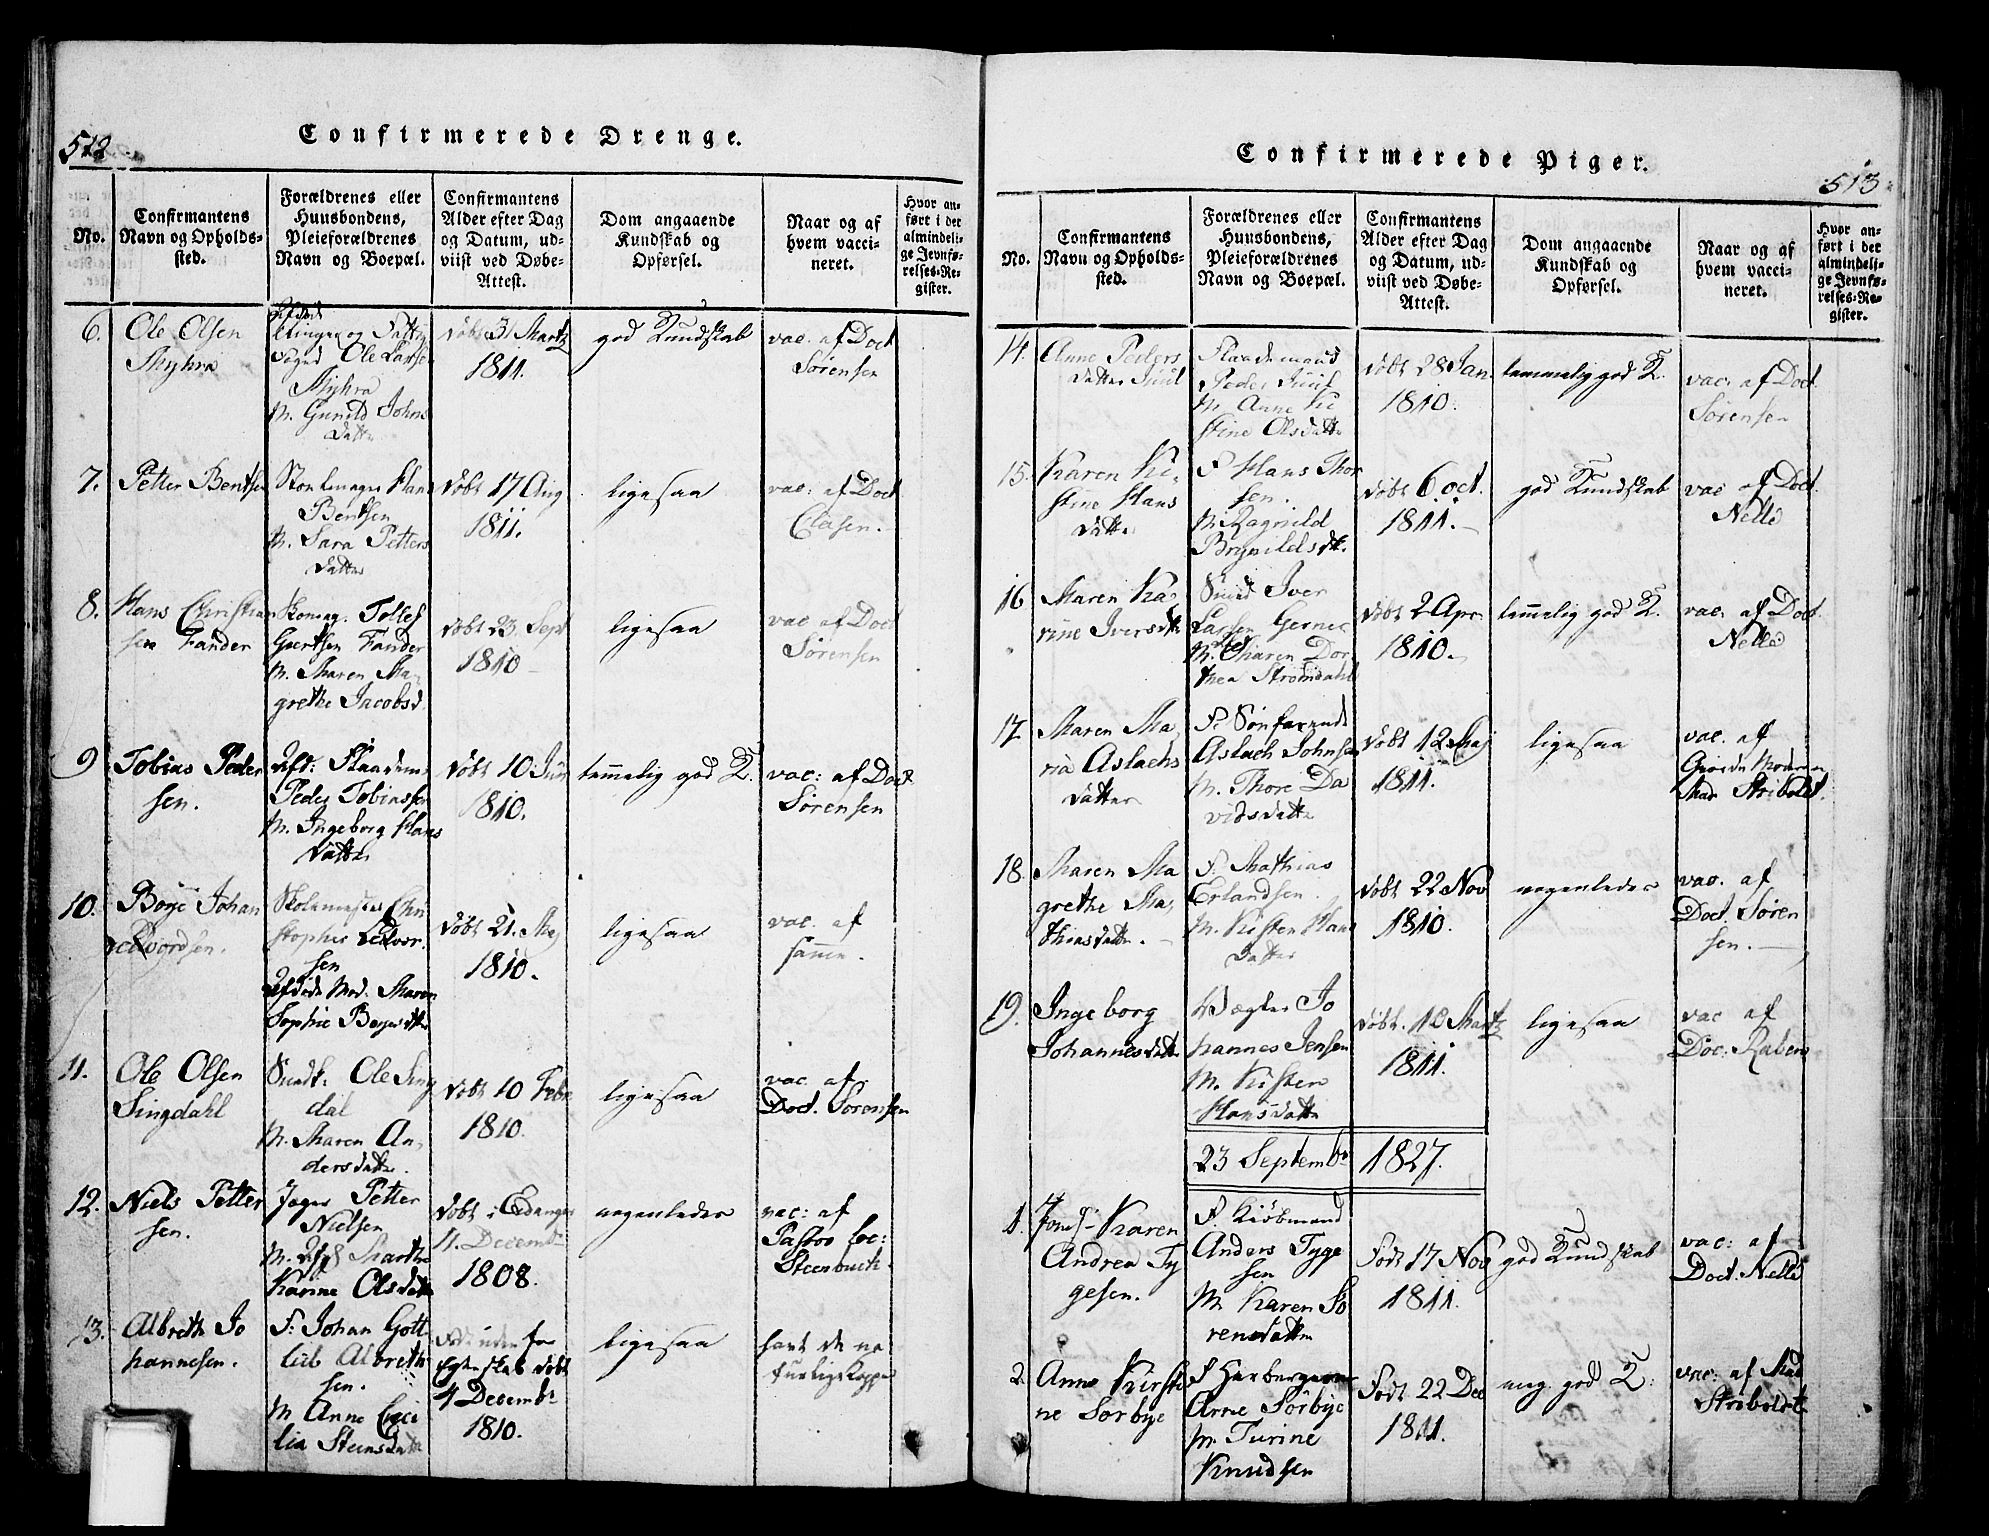 512
Confirmerede Drenge.
No.
Confirmantens
Navn og Opholds-
sted.
Forældrenes eller
Huusbondens,
Pleieforældrenes
Navn og Boepæl.
Confirmantens
Alder efter Dag
og Datum, ud-
viist ved Døbe-
Attest.
Dom angaaende
Kundskab og
Opførsel.
Naar og af
hvem vacci-
neret.
Hvor an-
ført i det
almindeli-
ge Jevnfø-
relses-Re-
gister.
6.
Ole Olsen
Myhra
Ole Larsen
Myhra
M. Gunild Johns
datter
døbt 31 Martz
1811.
god Kundskab
vac. af Doct
Sørensen
7.
Petter Bentsen
Hans
Bentsen
M. Sara Petters
datter
døbt 17 Aug
1811.
ligesaa
vac: af Doct
Clasen.
8.
Hans Christian
sen Fander
Skomag. Tollef
Gjertsen Fander
M. Maren Ma-
grethe Jacobsd.
døbt 23. Sept
1810
ligesaa
vac af Doct
Sørensen
9
Tobias Peder
sen.
Afd: Flaadem.
Peder Tobiassen
M. Ingeborg Hans
datter
døbt 10 Juni
1810.
temmelig god K.
vac: af Doct
Sørensen
10.
Børje Johan
Edvordsen.
Skolemester Chri
stopher Edvor.
sen
Afdøde Mod. Maren
Sophie Børjesdtr
døbt 21. Maj
1810.
ligesaa
vac. af
samme.
11.
Ole Olsen
Singdahl
Ole Sing
dal
M. Maren An-
dersdatter.
døbt 10 Febr
1810.
ligesaa
vac. af
Doct. Sørensen
12.
Niels Petter
sen.
Jæger Petter
Nielsen
M. Afd Marthe
Karine Olsdatter
døbt i Eidanger
4. Decembr
1808.
nogenledes
vac: af
Pastor
Steenbuch.
13.
Albreth Jo
hannesen.
F. Johan Gott
lieb Albreth
sen.
M Anne Ceci
lia Steensdatter
Født uden for
Egteskab døbt
4 Decembr
1810.
ligesaa
havt de na
turlige Kopper
Confirmerede Piger.
513
No.
Confirmantens
Navn og Opholds-
sted.
Forældrenes eller
Huusbondens,
Pleieforældrenes
Navn og Boepæl.
Confirmantens
Alder efter Dag
og Datum, ud-
viist ved Døbe-
Attest.
Dom angaaende
Kundskab og
Opførsel.
Naar og af
hvem vacci-
neret.
Hvor an-
ført i det
almindeli-
ge Jevnfø-
relses-Re-
gister.
14.
Anne Peders
datter Juul
Flaademand
Peder Juul
M. Anne Ki
stine Olsdatter
døbt 28 Jan.
1810.
temmelig god K.
vac. af Doct.
Sørensen
15.
Karen Ki-
stine Hans
datter
F Hans Thor
sen.
M. Ragnild
Brynildsdtr.
døbt 6 oct.
1811.
god Kundskab
vac af Doct.
Nelle
16
Maren Ka-
rine Iversdtr
Smed Iver
Larsen Gerner
M. Maren Dor
thea Strømdahl
døbt 2 Apr.
1810.
temmelig god K.
vac. af Doct.
Nelle
17.
Maren Ma-
ria Aslachs
datter
F. Sønfarende
Aslach Johnsen
M. Thore Da
vidsdatter
døbt 12 Maj
1811.
ligesaa
vac. af
Mad Stribolt.
18.
Maren Ma
grethe Ma-
thiasdatter.
F. Mathias
Erlandsen.
M. Kisten Hans
datter
døbt 22 Nov
1810.
nogenledes
vac. af
Doct. Søren
sen.
19.
Ingeborg
Johannesdatter
Vægter Jo
hannes Jensen
M. Kisten
Hansdatter
døbt. 10 Martz
1811.
ligesaa
vac af
Doc. Raben
23 Septembr
1827.
1.
Jomf. Karen
Andrea Ty
gesen.
F. Kiøbmand
Anders Tyge
sen
M. Karen Sø
rensdatter
Født 17 Nov
1811.
god Kundskab
vac: af
Doct. Nelle
2.
Anne Kirsti
ne Sørbye
Arne Sørbye
M. Turine
Knudsen
Født 22 Dec
1811.
meg. god K.
vac: af Mad
Striboldt